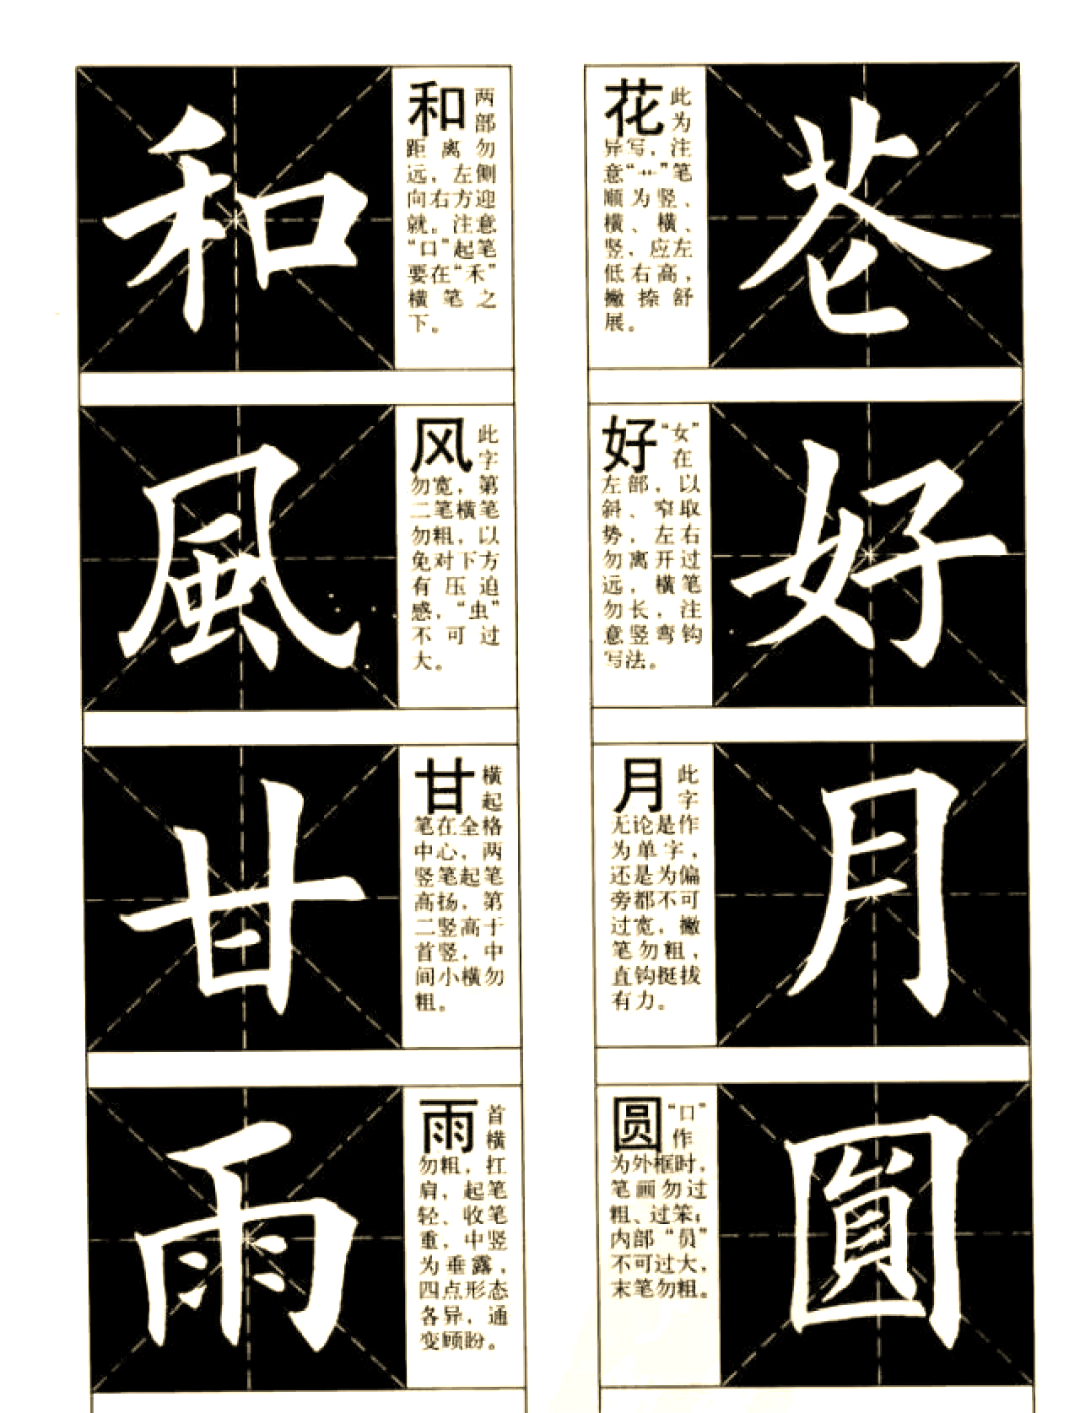 和
和 两
部
距离勿
远，左侧
向右方迎
就。注意
“口”起笔
要在“禾”
横笔之
下。
風
风 此
字
勿宽，第
二笔横笔
勿粗，以
免对下方
有压迫
感，“虫”
不可过
大。
甘
甘 横
起
笔在全格
中心，两
竖笔起笔
高扬，第
二竖高于
首竖，中
间小横勿
粗。
雨
雨 首
横
勿粗，扛
肩，起笔
轻、收笔
重，中竖
为垂露，
四点形态
各异，通
变顾盼。
花 此
为
异写，注
意“艹”笔
顺为竖、
横、横、
竖，应左
低右高，
撇捺舒
展。
花
好 “女”
在
左部，以
斜、窄取
势，左右
勿离开过
远，横笔
勿长，注
意竖弯钩
写法。
好
月 此
字
无论是作
为单字，
还是为偏
旁都不可
过宽，撇
笔勿粗，
直钩挺拔
有力。
月
圆 “口”
作
为外框时，
笔画勿过
粗、过笨；
内部“员”
不可过大，
末笔勿粗。
圓